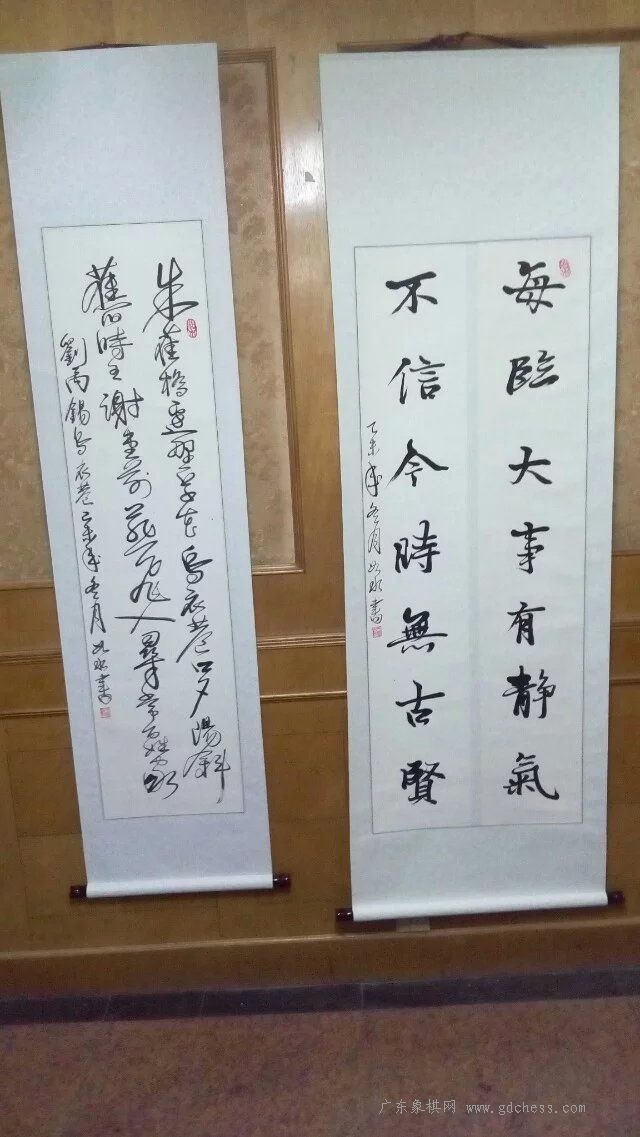 每臨大事有静氣
不信今時無古賢
乙未年冬月 書
朱雀橋邊野草花烏衣巷口夕陽斜
舊時王謝堂前燕飛入尋常百姓家
劉禹錫烏衣巷乙未年冬月 書
广东象棋网 www.gdchess.com